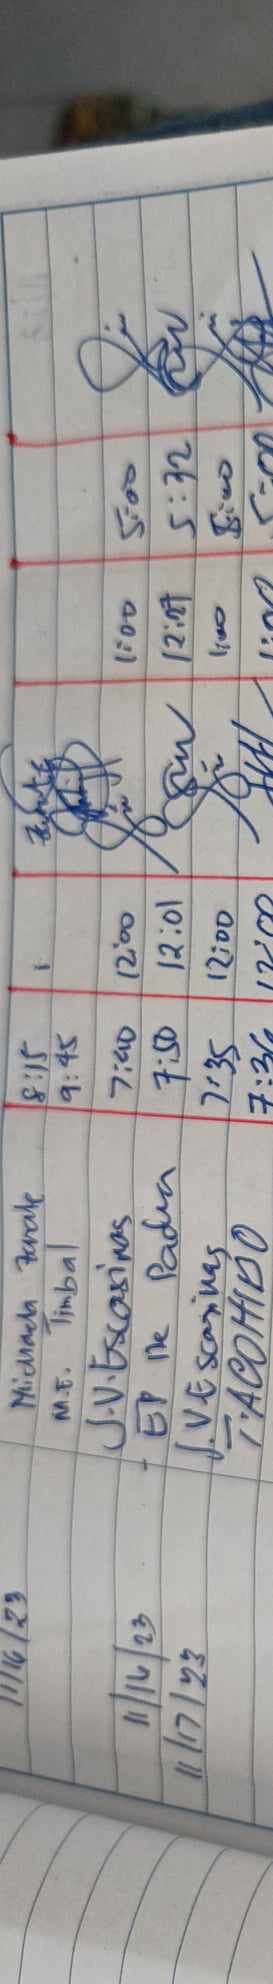 11/16/23 Michaela Zarate 8:15
M.E. Timbal 9:45
J.V. Escasinas 7:40 12:00 1:00 5:00
11/16/23 EP De Padua 7:50 12:01 12:07 5:32
11/17/23 J.V. Escasinas 7:35 12:00 1:00 5:00
T. ACOHIDO 7:36 12:00 1:00 5:00